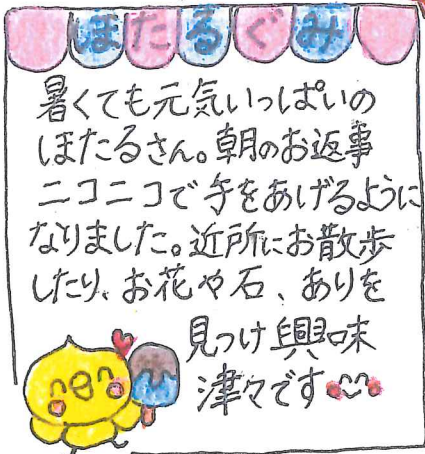 ほたるぐみ
暑くても元気いっぱいの
ほたるさん。朝のお返事
ニコニコで手をあげるように
なりました。近所にお散歩
したり、お花や石、ありを
見つけ興味
津々です